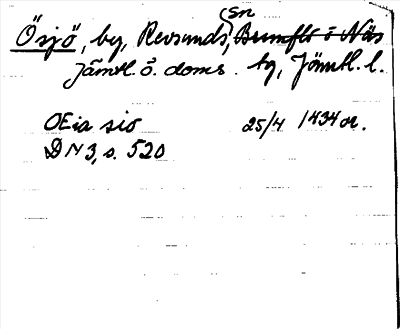 Ösjö, by, Revsunds sn, Brunflo o Näs
Jämtl. ö. doms. tg, Jämtl. l.
OEia sio 25/4 1434 or.
DN 3, s. 520